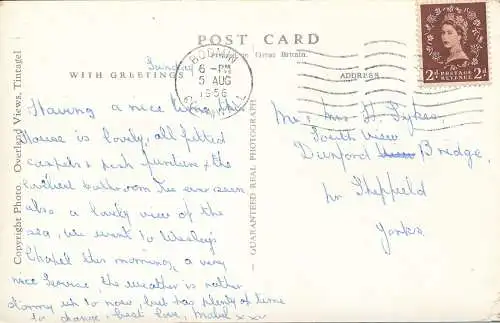 POST CARD
Printed in Great Britain.
WITH GREETINGS
ADDRESS
Sunday
BODMIN
6-PM
5 AUG
1956
CORNWALL
POSTAGE REVENUE
2d 2d
Having a nice time, the
house is lovely, all fitted
carpets & posh furniture & the
loveliest bathroom I've ever seen
also a lovely view of the
sea, we went to Wesley's
Chapel this morning, a very
nice service, the weather is rather
stormy up to now, but has plenty of time
to change, best love, Mabel xxx
Mr & Mrs H. Sykes
South View
Dunford Bridge,
Nr Sheffield
Yorks
Copyright Photo. Overland Views, Tintagel
GUARANTEED REAL PHOTOGRAPH